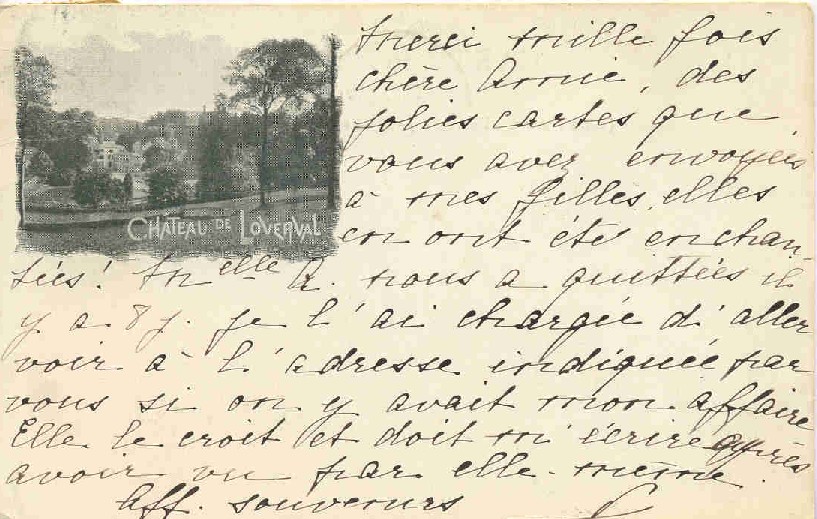 Merci mille fois
chère Annie, des
jolies cartes que
vous avez envoyées
à mes filles, elles
en ont été enchan-
CHÂTEAU DE LOVERVAL
tées! Melle A. nous a quittées il
y a 8 j. je l'ai chargée d'aller
voir à l'adresse indiquée par
vous si on y avait mon affaire
Elle le croit et doit m'écrire après
avoir vu par elle-même.
Aff. souvenirs